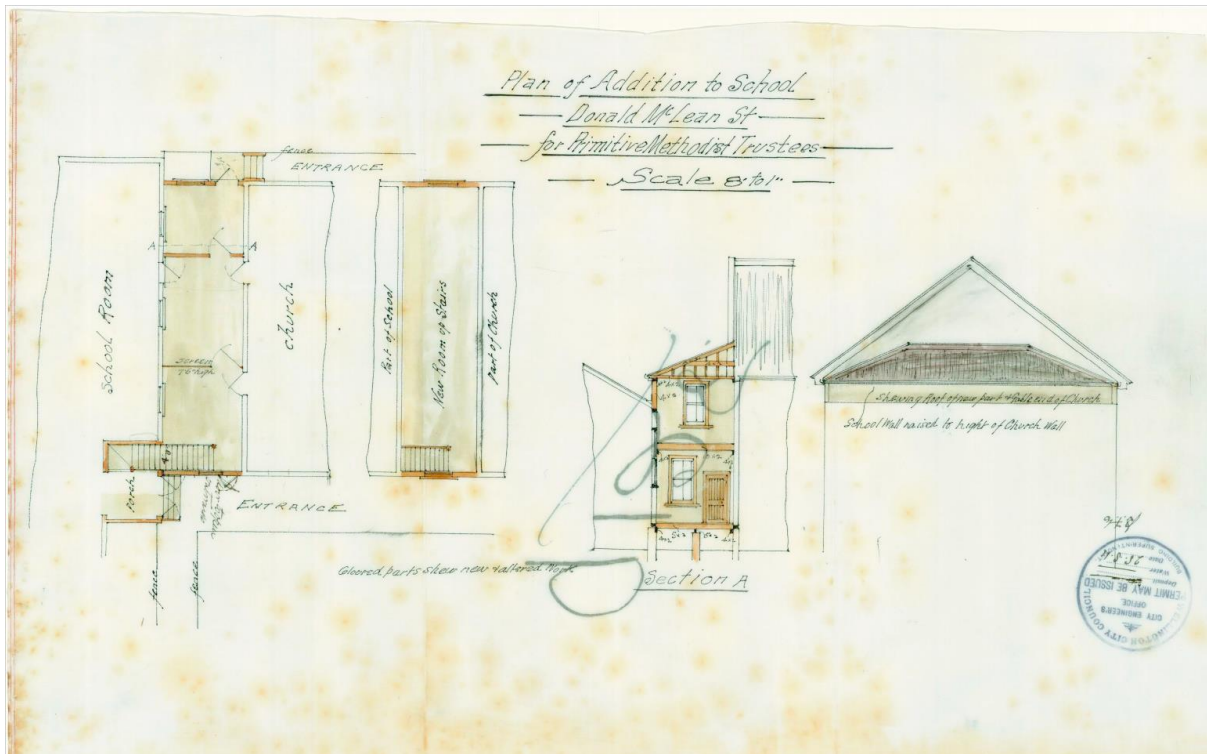 Plan of Addition to School
Donald McLean St
for Primitive Methodist Trustees
Scale 8' to 1"
fence
ENTRANCE
A
A
School Room
Church
screen
porch
ENTRANCE
fence
fence
Part of School
New Room up Stairs
Part of Church
Colored parts shew new & altered Work
Section A
Shewing Roof of new part & Gable end of Church
School Wall raised to hight of Church Wall
WELLINGTON CITY COUNCIL
CITY ENGINEER'S
OFFICE.
PERMIT MAY BE ISSUED
Deposit
Water
Date
BUILDING SUPERINTENDENT